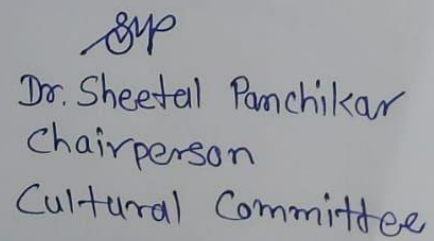 Dr. Sheetal Panchikar
Chairperson
Cultural Committee